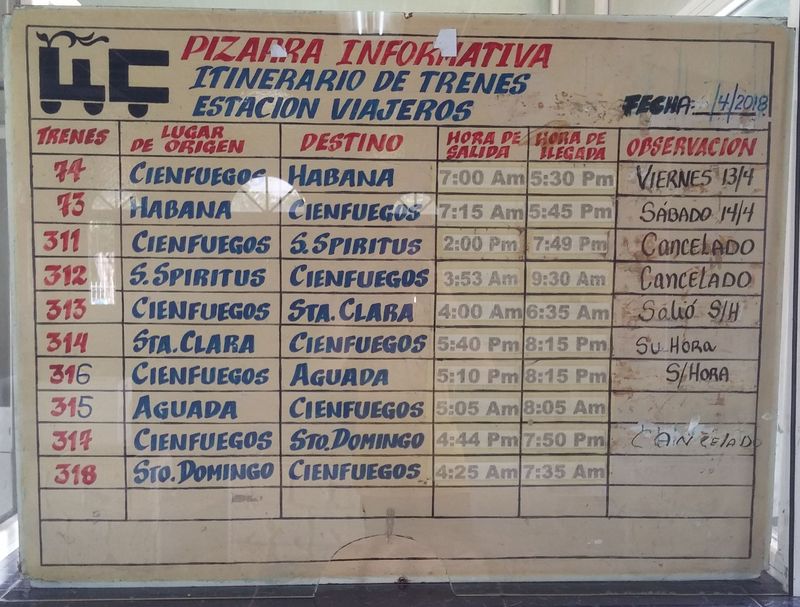 PIZARRA INFORMATIVA
ITINERARIO DE TRENES
ESTACION VIAJEROS
FECHA: /4/2018
TRENES LUGAR DE ORIGEN DESTINO HORA DE SALIDA HORA DE LLEGADA OBSERVACION
74 CIENFUEGOS HABANA 7:00 Am 5:30 Pm VIERNES 13/4
73 HABANA CIENFUEGOS 7:15 Am 5:45 Pm SÁBADO 14/4
311 CIENFUEGOS S. SPIRITUS 2:00 Pm 7:49 Pm CANCELADO
312 S. SPIRITUS CIENFUEGOS 3:53 Am 9:30 Am CANCELADO
313 CIENFUEGOS STA. CLARA 4:00 Am 6:35 Am Salió S/H
314 STA. CLARA CIENFUEGOS 5:40 Pm 8:15 Pm Su HORA
316 CIENFUEGOS AGUADA 5:10 Pm 8:15 Pm S/HORA
315 AGUADA CIENFUEGOS 5:05 Am 8:05 Am
317 CIENFUEGOS STO. DOMINGO 4:44 Pm 7:50 Pm CANCELADO
318 STO. DOMINGO CIENFUEGOS 4:25 Am 7:35 Am